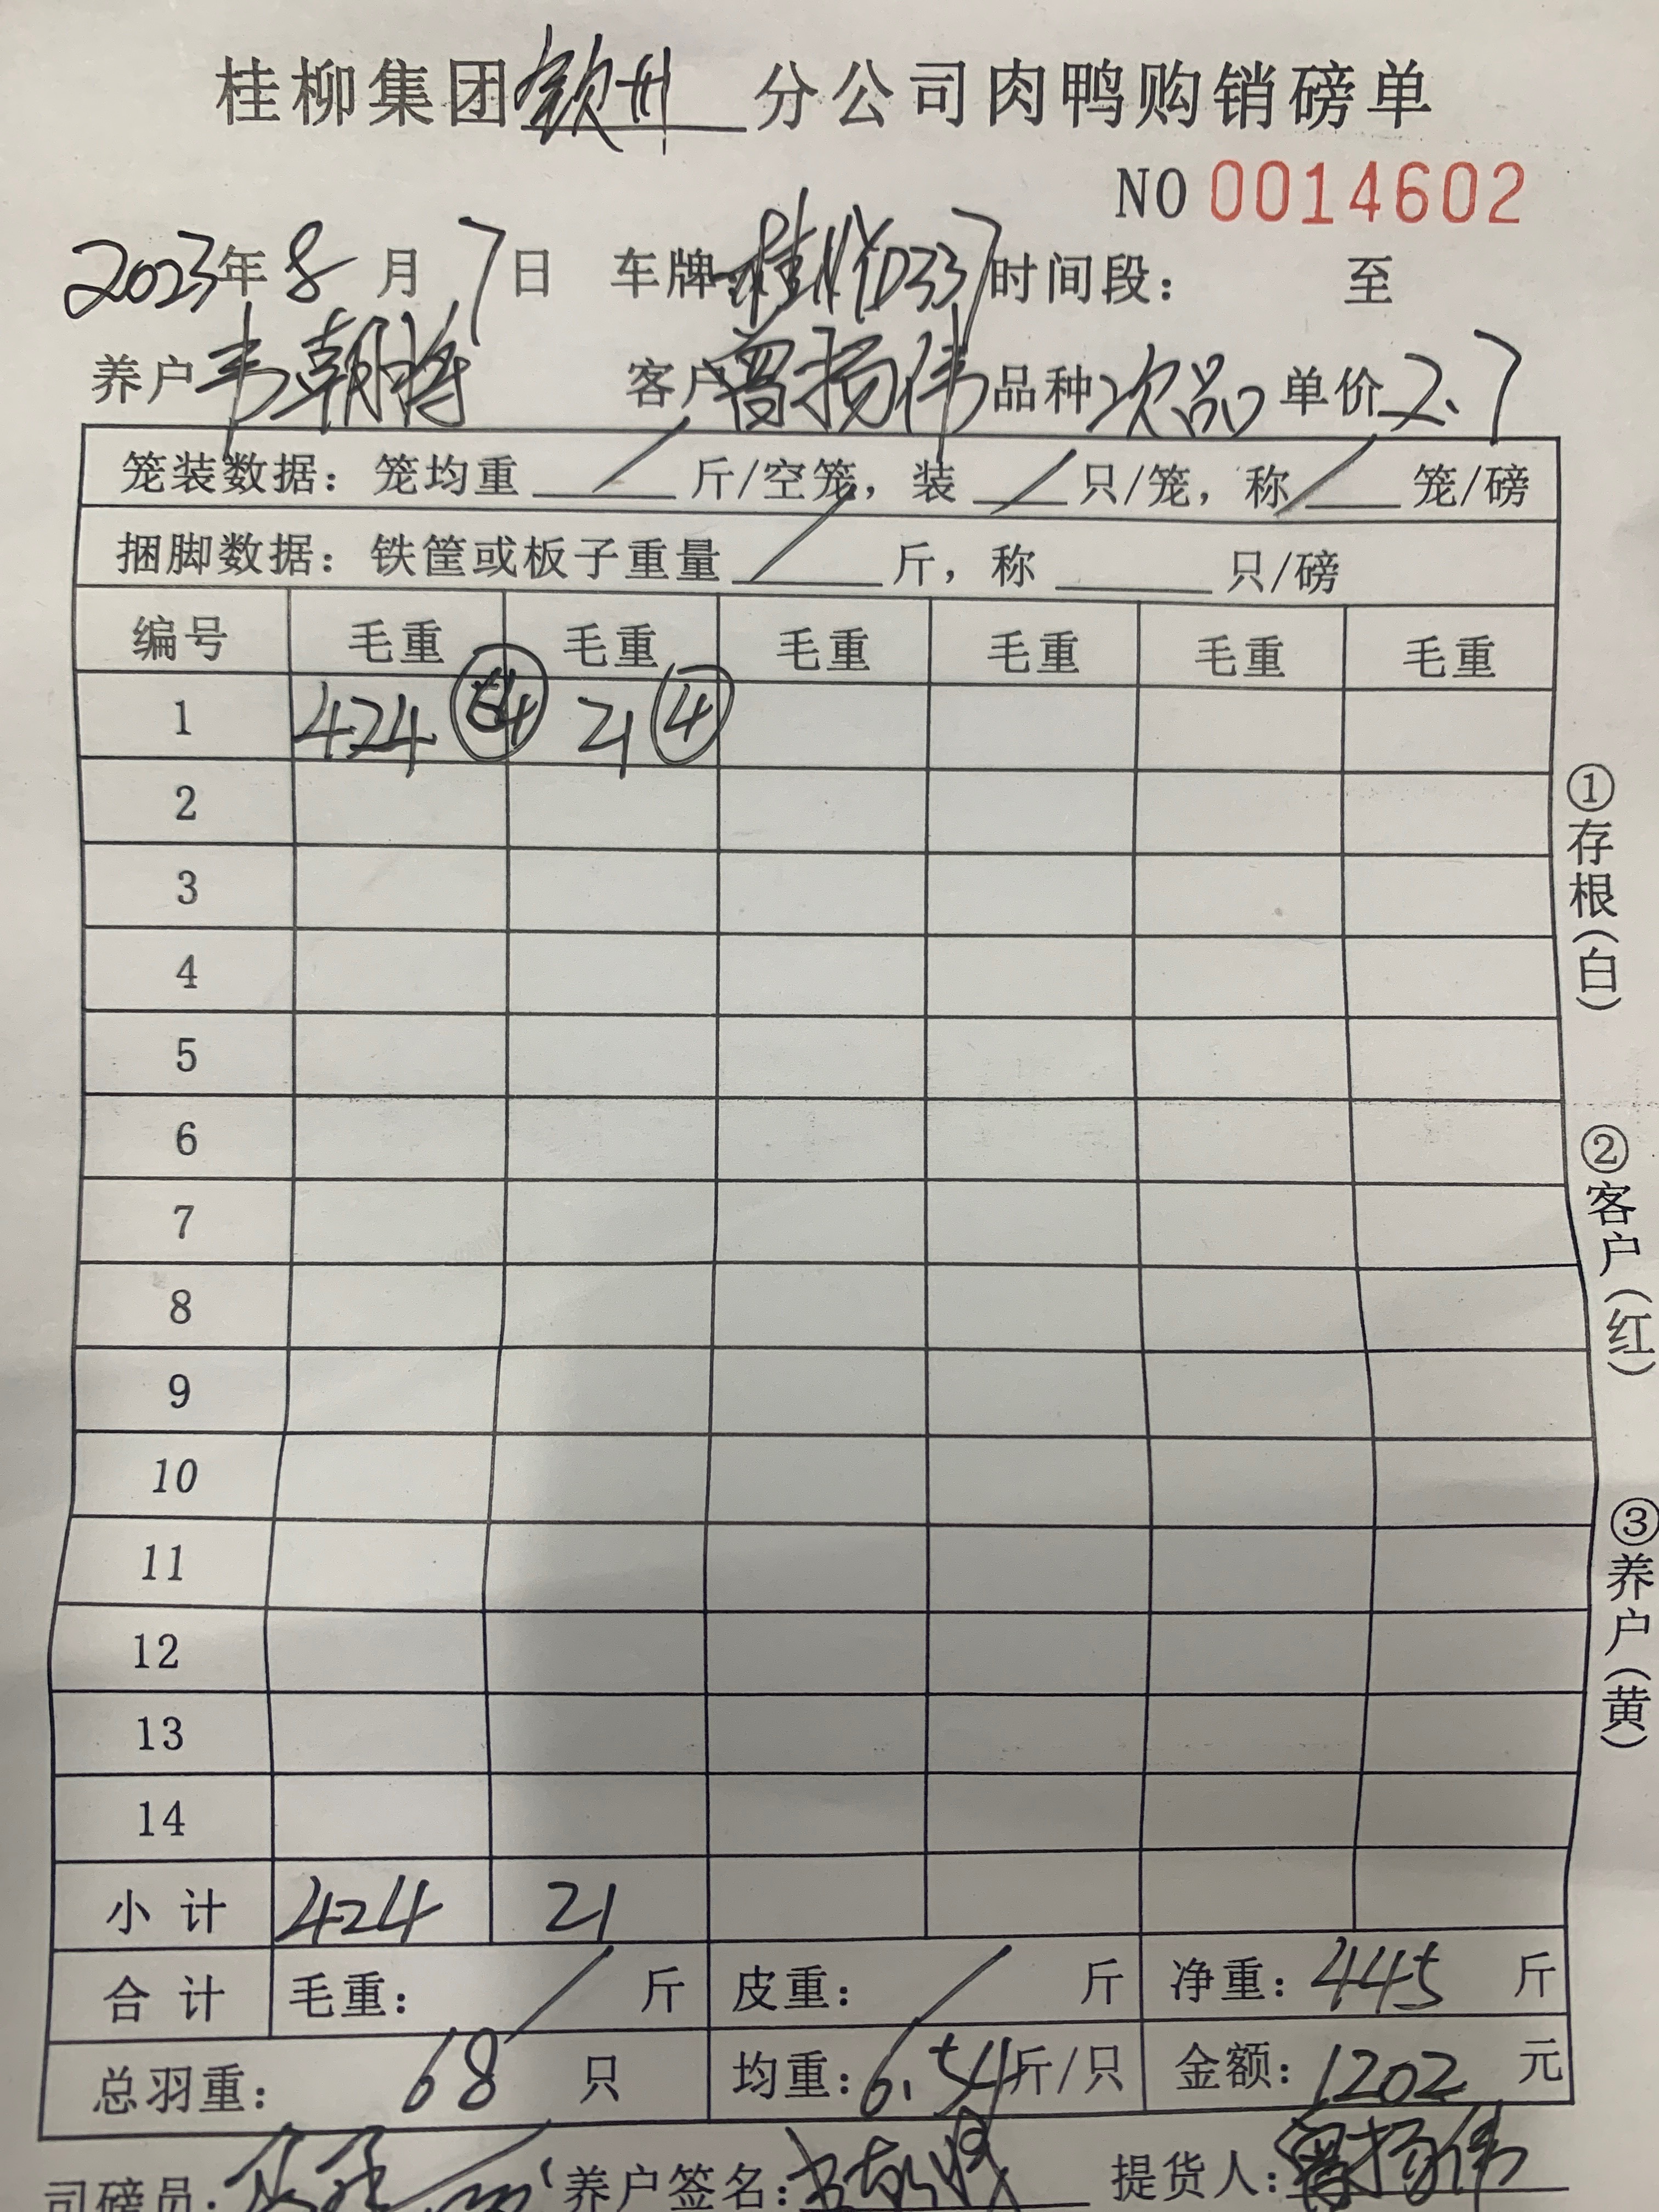 桂柳集团钦州分公司肉鸭购销磅单
NO 0014602
2023年8月7日 车牌:桂 D337 时间段: 至
养户 韦朝将 客户 曾扬伟 品种 次品 单价 2.7
笼装数据: 笼均重 / 斤/空笼, 装 / 只/笼, 称 / 笼/磅
捆脚数据: 铁筐或板子重量 / 斤, 称 只/磅
编号 毛重 毛重 毛重 毛重 毛重 毛重
1 424 64 21 4
2
3
4
5
6
7
8
9
10
11
12
13
14
小计 424 21
合计 毛重: / 斤 皮重: / 斤 净重: 445 斤
总羽重: 68 只 均重: 6.54 斤/只 金额: 1202 元
司磅员: 养户签名: 提货人: 曾扬伟
①存根(白)
②客户(红)
③养户(黄)